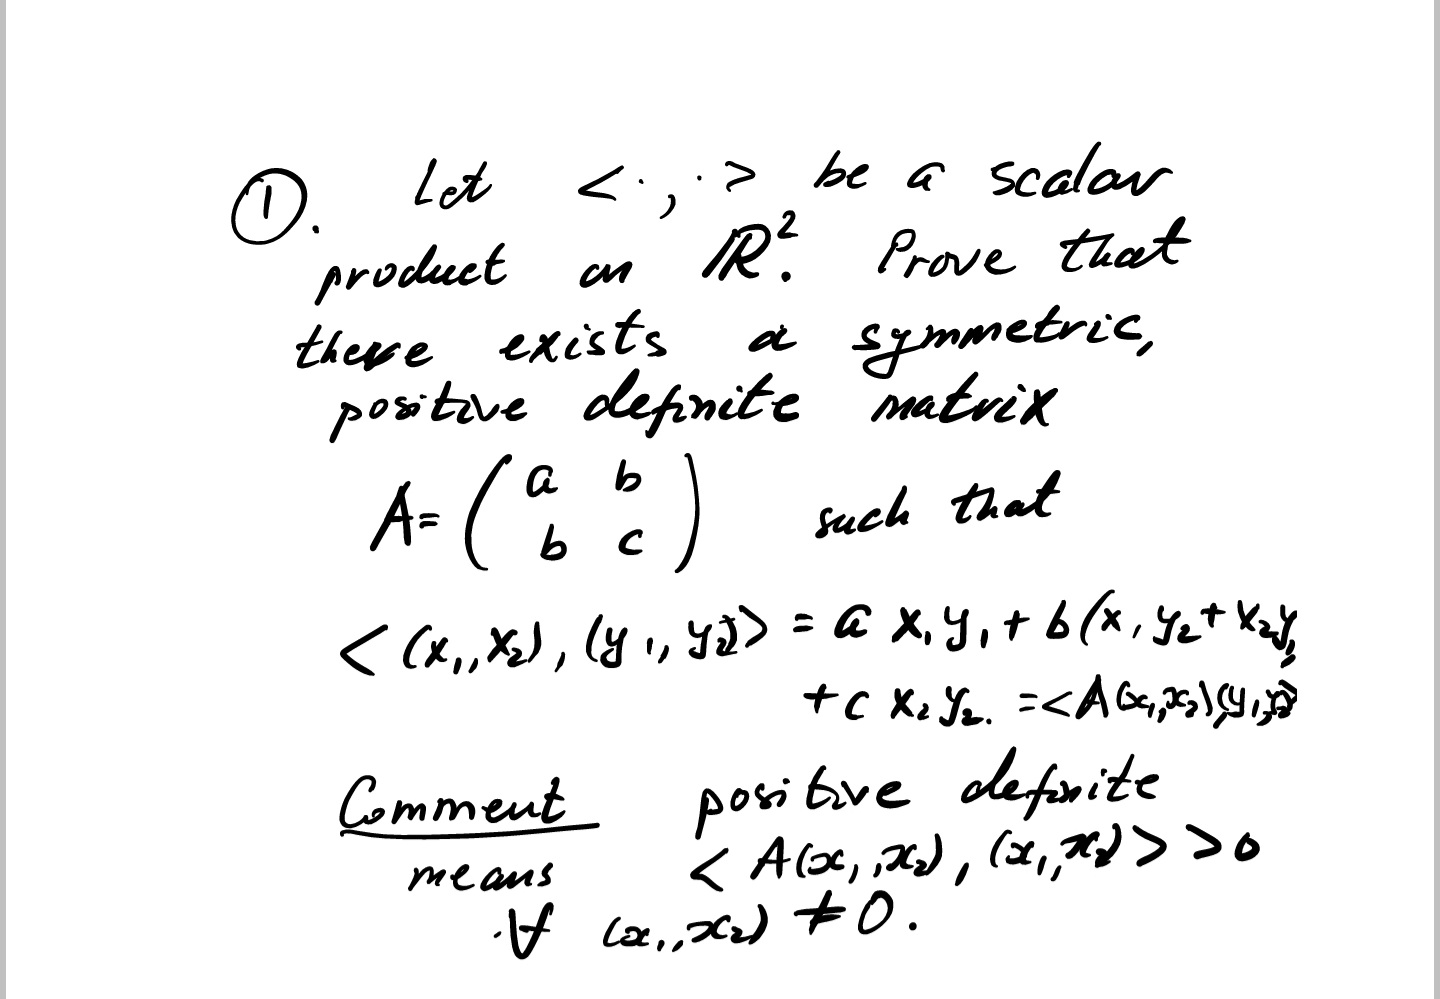 ①. Let < · , · > be a scalar
product on ℝ². Prove that
there exists a symmetric,
positive definite matrix
A = ( a b
b c ) such that
< (x₁, x₂), (y₁, y₂) > = a x₁ y₁ + b(x₁ y₂ + x₂ y₁
+ c x₂ y₂. = < A(x₁, x₂), (y₁, y₂) >
Comment positive definite
means < A(x₁, x₂), (x₁, x₂) > > 0
∀ (x₁, x₂) ≠ 0.